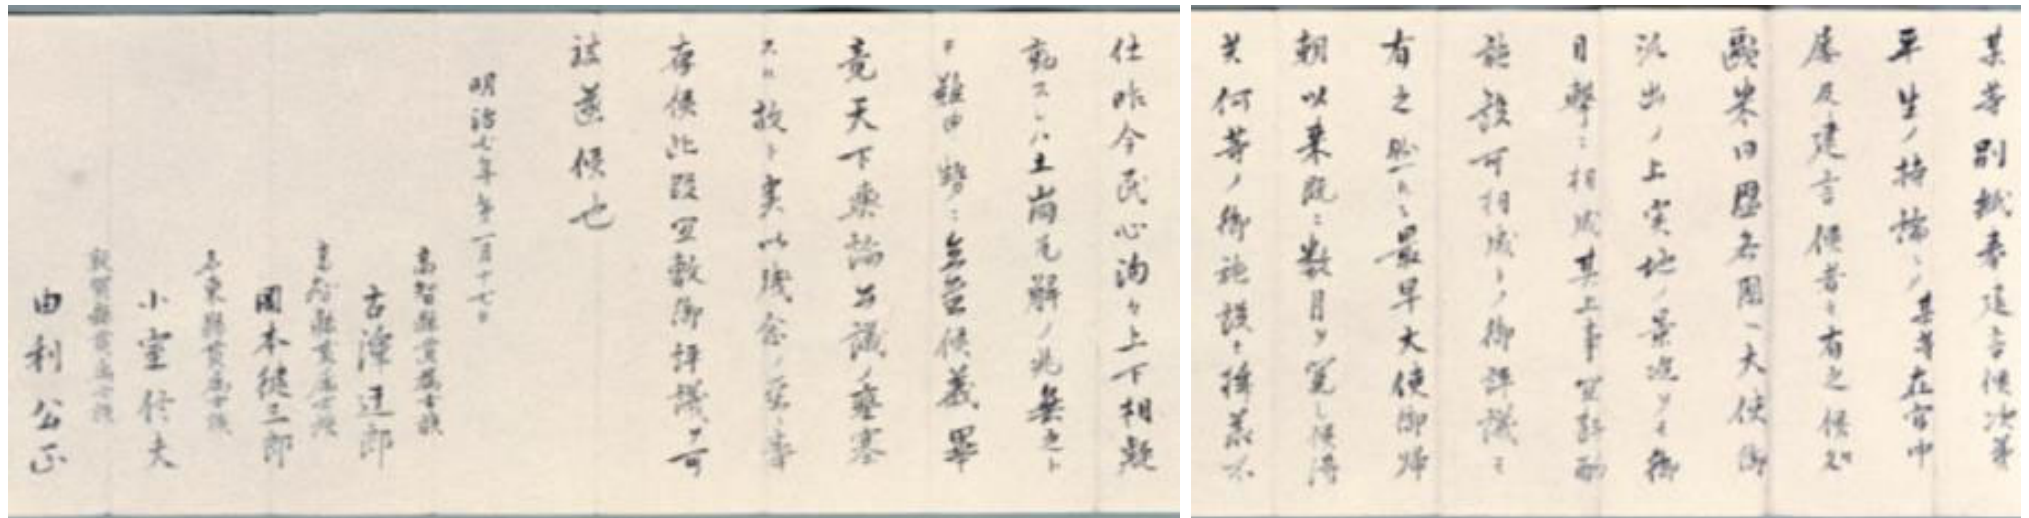 某等別紙奉建言候次第
平生ノ持論ニシテ某等在官中
屡及建言候者モ有之候処
歐米同盟各国ヘ大使御
派出ノ上実地ノ景況ヲモ御
目撃ニ相成其上事宜斟酌
施設可相成トノ御評議モ
有之然ルニ最早大使御帰
朝以来既ニ数月ヲ閲シ候得
共何等ノ御施設モ拝承不
仕昨今民心洶々上下相疑
動スレハ土崩瓦解ノ兆無之ト
モ難申勢ニ立至候義畢
竟天下輿論公議ノ壅塞
スル故ト実以残念ノ至ニ奉
存候此段宜敷御評議ヲ可
被遂候也
明治七年第一月十七日
高智縣貫属士族
古澤迂郎
高智縣貫属士族
岡本健三郎
名東縣貫属士族
小室信夫
敦賀縣貫属士族
由利公正